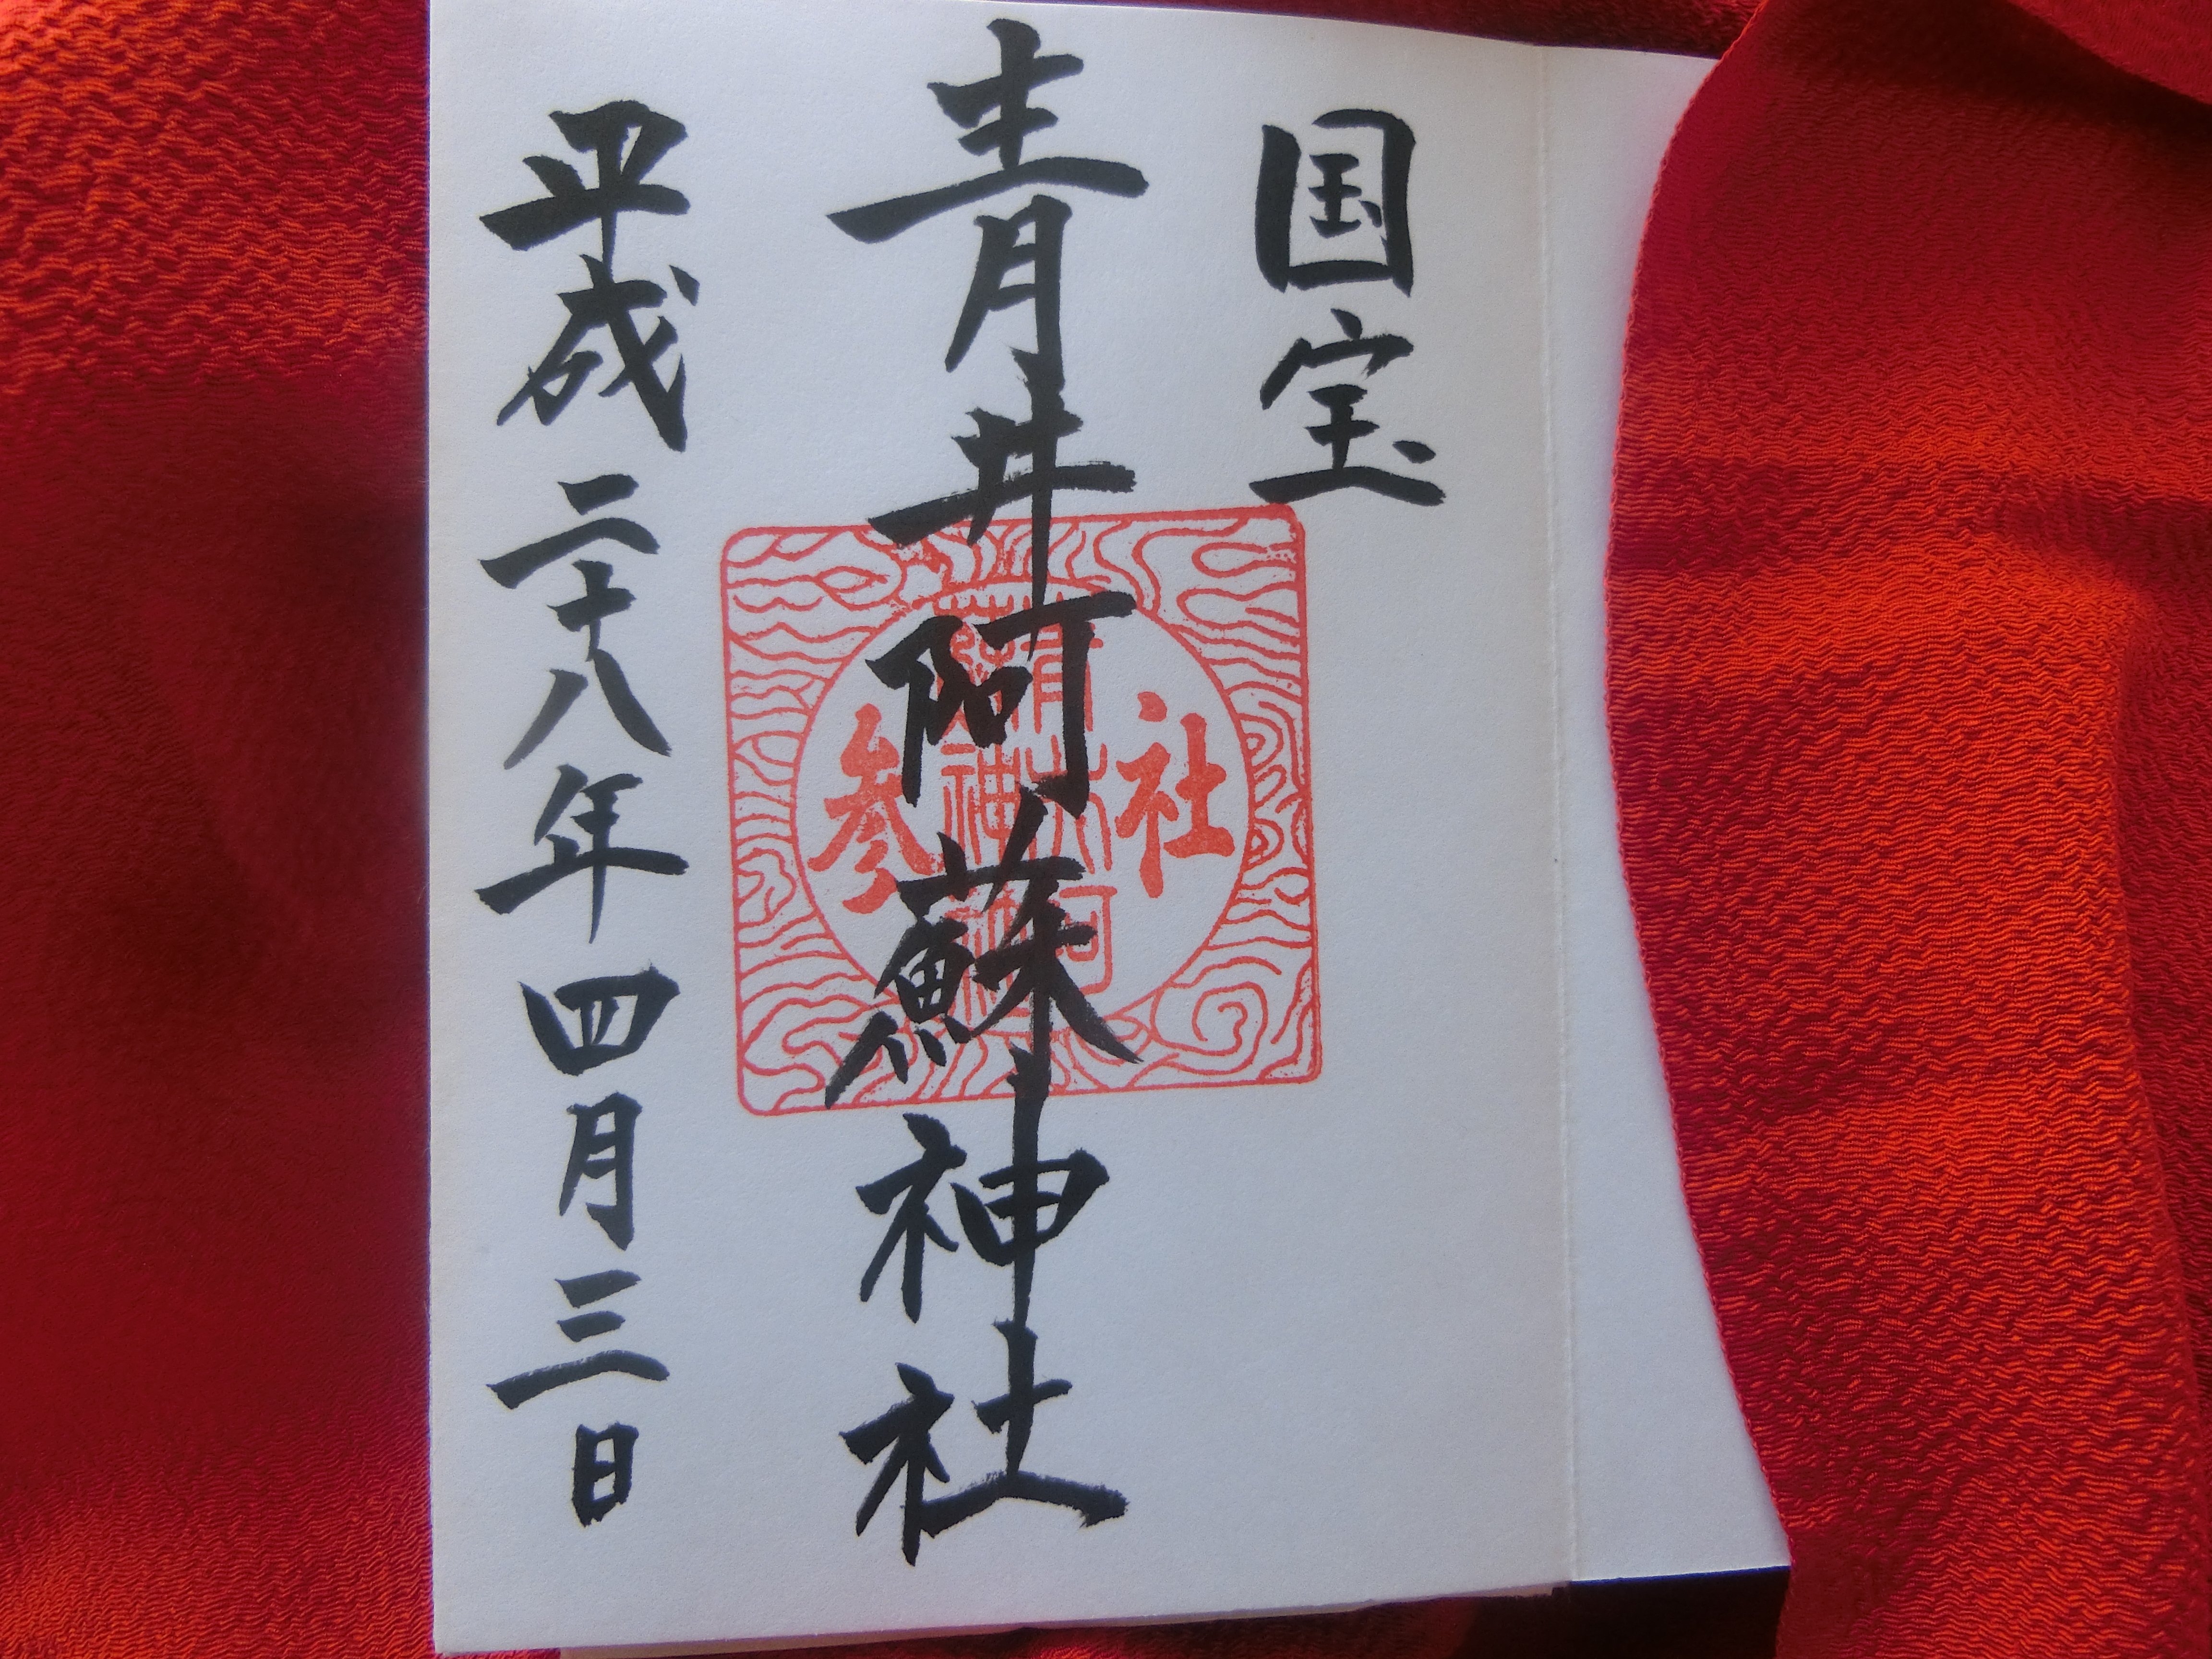 国宝
青井阿蘇神社
平成二十八年四月三日
社参